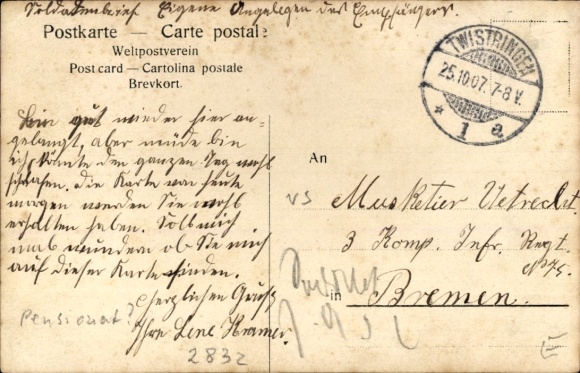 Soldatenbrief Eigene Angelegen des Empfängers.
Postkarte — Carte postale
Weltpostverein
Post card — Cartolina postale
Brevkort.
TWISTRINGEN
25.10.07. 7-8 V.
* 1 a
Bin gut wieder hier an-
gelangt, aber müde bin
ich, könnte den ganzen Tag wohl
schlafen. Die Karte von heute
morgen werden Sie wohl
erhalten haben. Soll mich
mal wundern ob Sie mich
auf dieser Karte finden.
Herzlichen Gruß
Ihre Lene Kramer.
An
Musketier Uetrecht
3 Komp. Infr. Regt.
No 75.
in Bremen.
vs
Pensionat?
2832